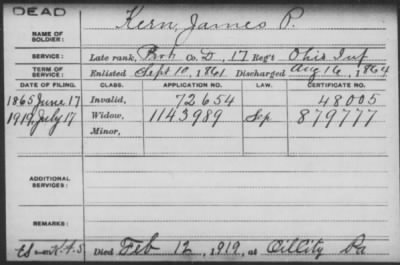 DEAD
NAME OF SOLDIER: Kern, James P.
SERVICE: Late rank, Co. D, 17 Reg't Ohio Inf
TERM OF SERVICE: Enlisted Sept 10, 1861 Discharged Aug 16, 1864
DATE OF FILING. CLASS. APPLICATION NO. LAW. CERTIFICATE NO.
1865 June 17 Invalid, 72654 48005
1919, July 17 Widow, 1143989 879777
Minor,
ADDITIONAL SERVICES:
REMARKS:
Died Feb 12, 1919, at Oil City Pa